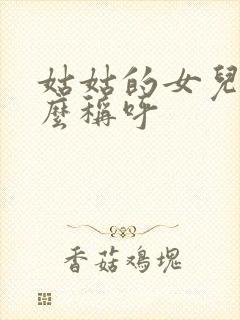 姑姑的女兒
麼稱呼
香菇鸡塊